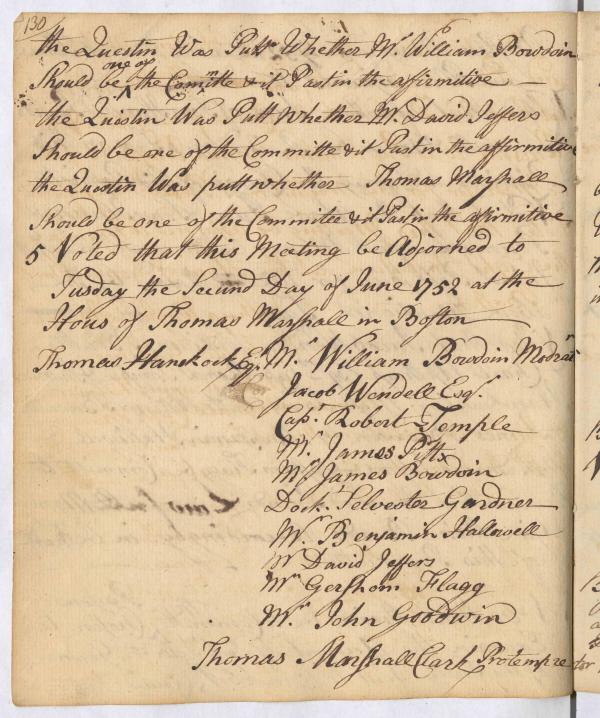 130
the Questin Was Putt Whether Mr William Bowdoin
Should be one of the Commtte & it Past in the affirmitive —
the Questin Was Putt whether Mr David Jeffers
Should be one of the Committe & it Past in the affirmitive
the Questin Was putt whether Thomas Marshall
Should be one of the Commitee & it Past in the affirmitive
5 Voted that this Meeting be Adjorned to
Tusday the Second Day of June 1752 at the
Hous of Thomas Marshall in Boston
Thomas Hanckock Esqr. Mr William Bowdoin Modrat
Jacob Wendell Esqr.
Capt. Robert Temple
Mr James Pitts
Mr James Bowdoin
Doct. Selvester Gardner
Mr. Benjamin Hallowell
Mr David Jeffers
Mr Gershom Flagg
Mr John Goodwin
Thomas Marshall Clark Protempre